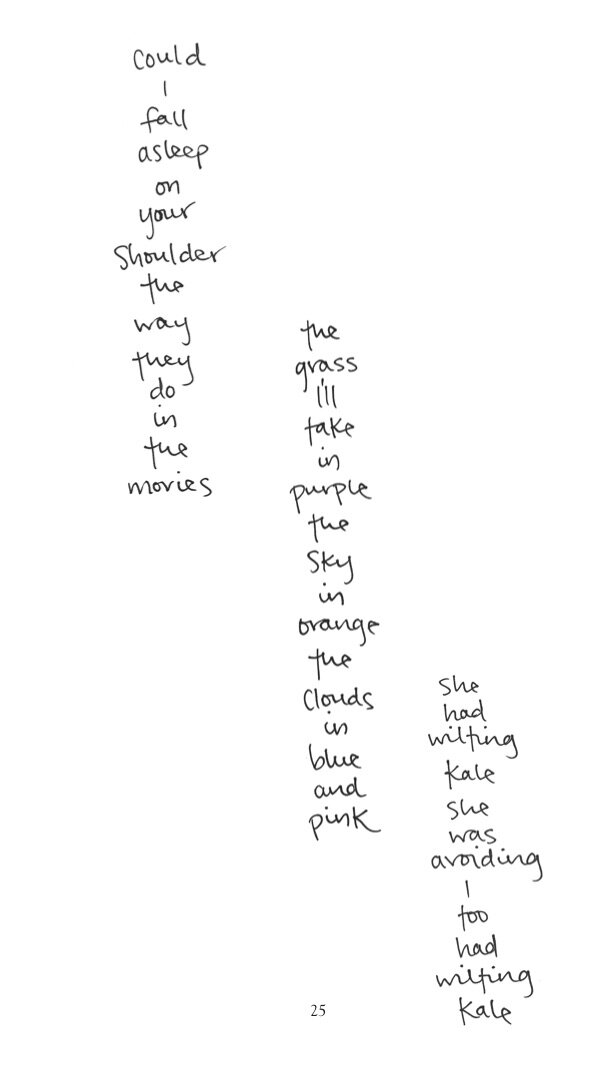 could
I
fall
asleep
on
your
shoulder
the
way
they
do
in
the
movies
the
grass
I'll
take
in
purple
the
sky
in
orange
the
clouds
in
blue
and
pink
she
had
wilting
kale
she
was
avoiding
I
too
had
wilting
kale
25